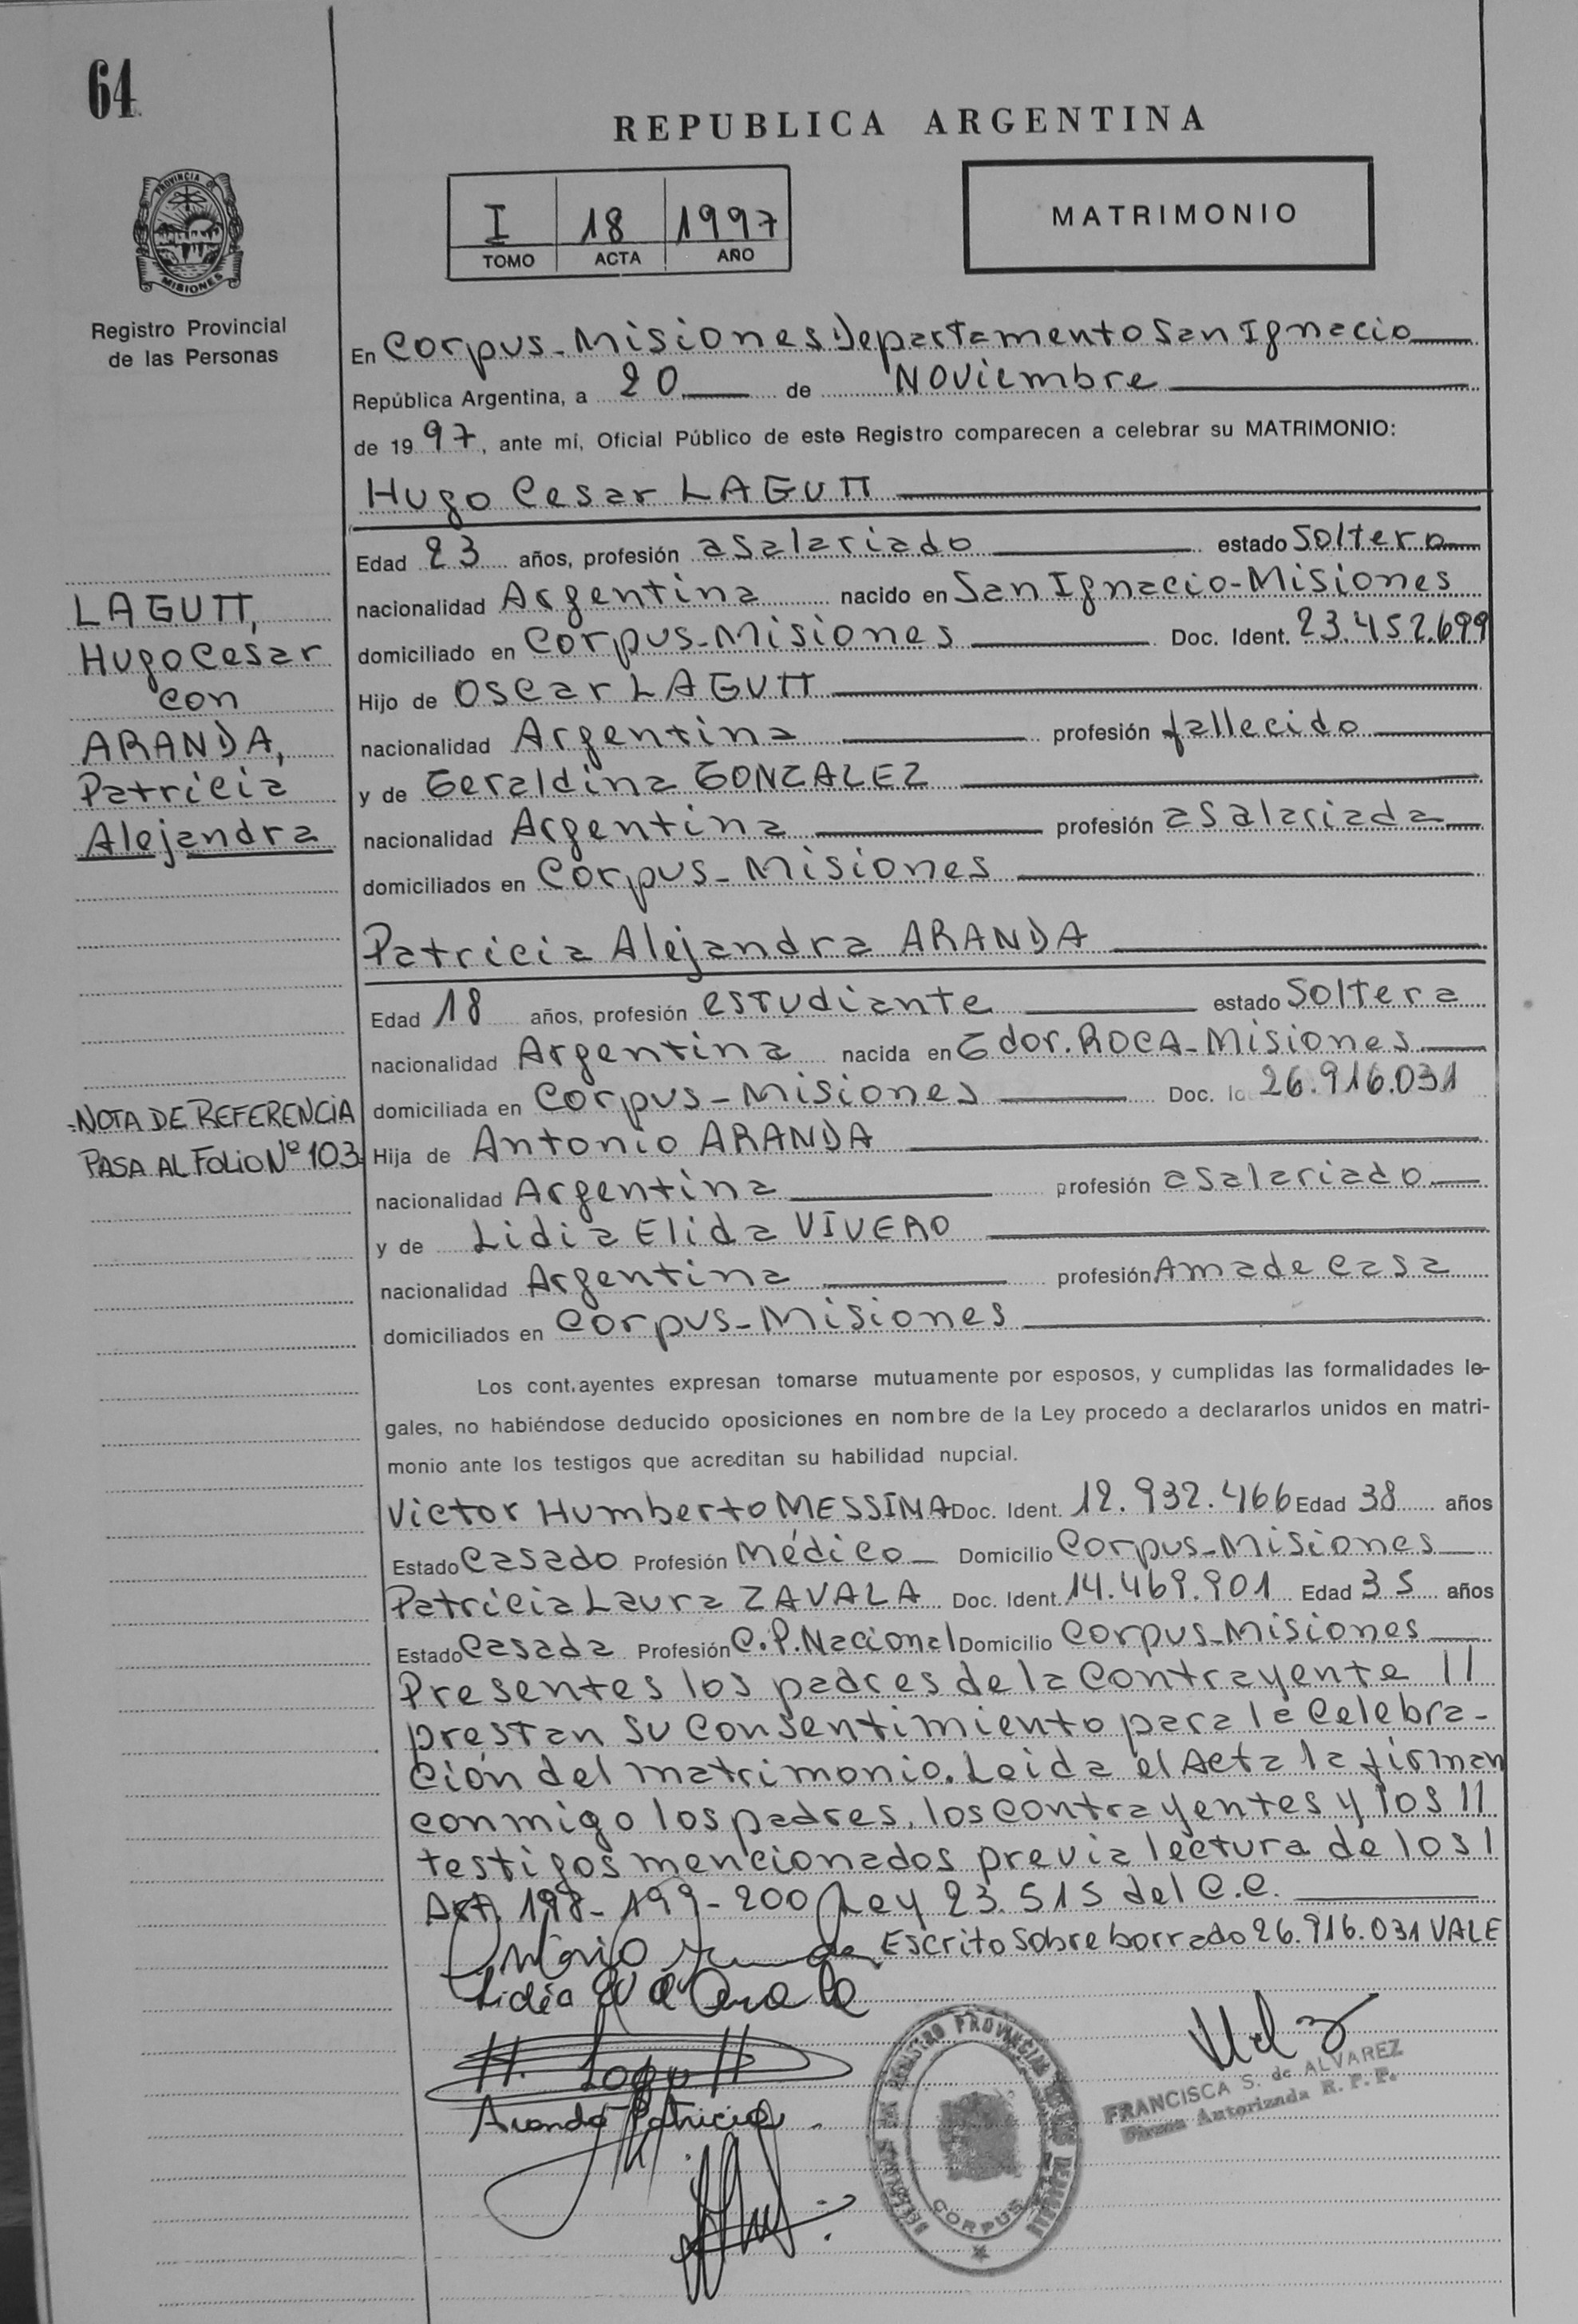 64
REPUBLICA ARGENTINA
PROVINCIA D
MISIONES
Registro Provincial
de las Personas
I 18 1997
TOMO ACTA AÑO
MATRIMONIO
En Corpus-Misiones Departamento San Ignacio
República Argentina, a 20 de Noviembre
de 1997, ante mí, Oficial Público de este Registro comparecen a celebrar su MATRIMONIO:
Hugo Cesar LAGUTT
Edad 23 años, profesión asalariado estado Soltero
nacionalidad Argentina nacido en San Ignacio-Misiones
domiciliado en Corpus-Misiones Doc. Ident. 23.452.699
Hijo de Oscar LAGUTT
nacionalidad Argentina profesión fallecido
y de Geraldina GONZALEZ
nacionalidad Argentina profesión asalariada
domiciliados en Corpus-Misiones
LAGUTT,
Hugo Cesar
con
ARANDA,
Patricia
Alejandra
Patricia Alejandra ARANDA
Edad 18 años, profesión estudiante estado Soltera
nacionalidad Argentina nacida en Gdor. ROCA-Misiones
domiciliada en Corpus-Misiones Doc. Id 26.916.031
Hija de Antonio ARANDA
nacionalidad Argentina profesión asalariado
y de Lidia Elida VIVERO
nacionalidad Argentina profesión Ama de casa
domiciliados en Corpus-Misiones
-NOTA DE REFERENCIA
PASA AL FOLIO Nº 103
Los cont.ayentes expresan tomarse mutuamente por esposos, y cumplidas las formalidades le-
gales, no habiéndose deducido oposiciones en nombre de la Ley procedo a declararlos unidos en matri-
monio ante los testigos que acreditan su habilidad nupcial.
Victor Humberto MESSINA Doc. Ident. 12.932.466 Edad 38 años
Estado Casado Profesión Médico Domicilio Corpus-Misiones
Patricia Laura ZAVALA Doc. Ident. 14.469.901 Edad 35 años
Estado Casada Profesión C.P.Nacional Domicilio Corpus-Misiones
Presentes los padres de la Contrayente //
prestan su consentimiento para la Celebra-
ción del matrimonio. Leida el Acta la firman
conmigo los padres, los contrayentes y los //
testigos mencionados previa lectura de los /
Art. 198-199-200 Ley 23.515 del C.C.
Escrito sobre borrado 26.916.031 VALE
Antonio Aranda
Lidia
H. Lagutt
Aranda Patricia
REGISTRO PROVINCIAL
CORPUS
FRANCISCA S. de ALVAREZ
Firma Autorizada R. P. P.